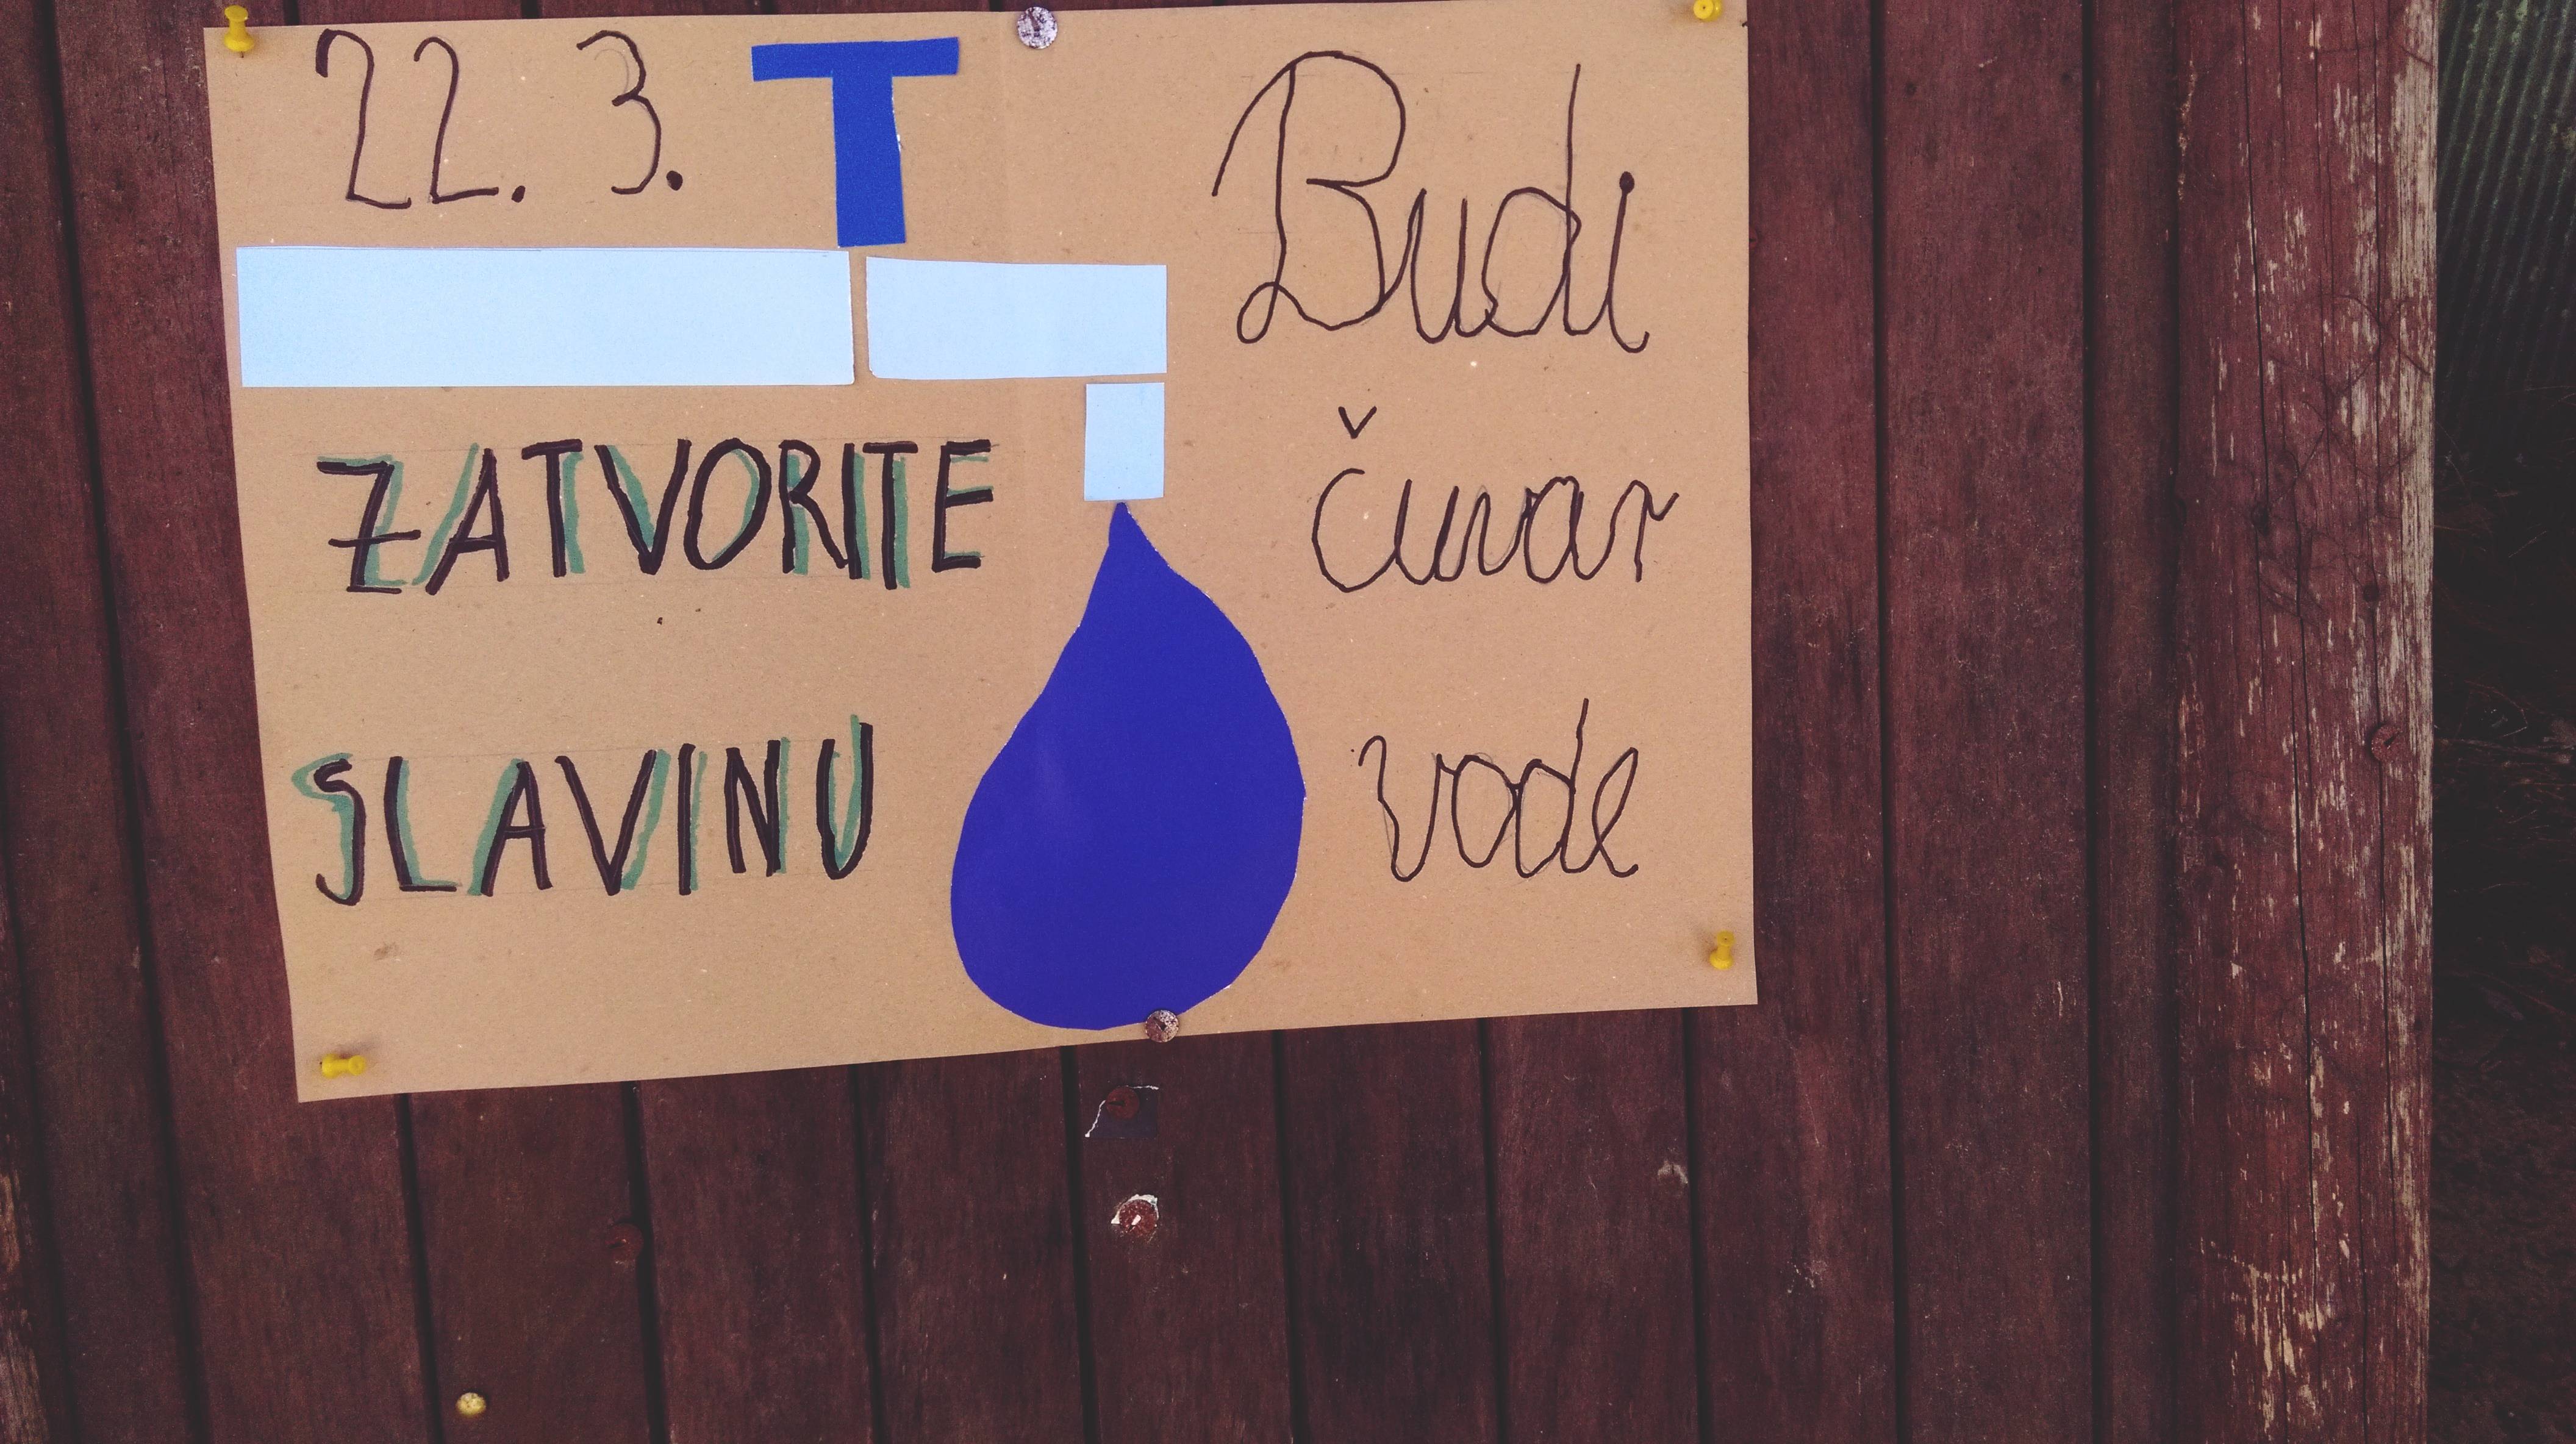 22. 3.
ZATVORITE
SLAVINU
Budi
čuvar
vode